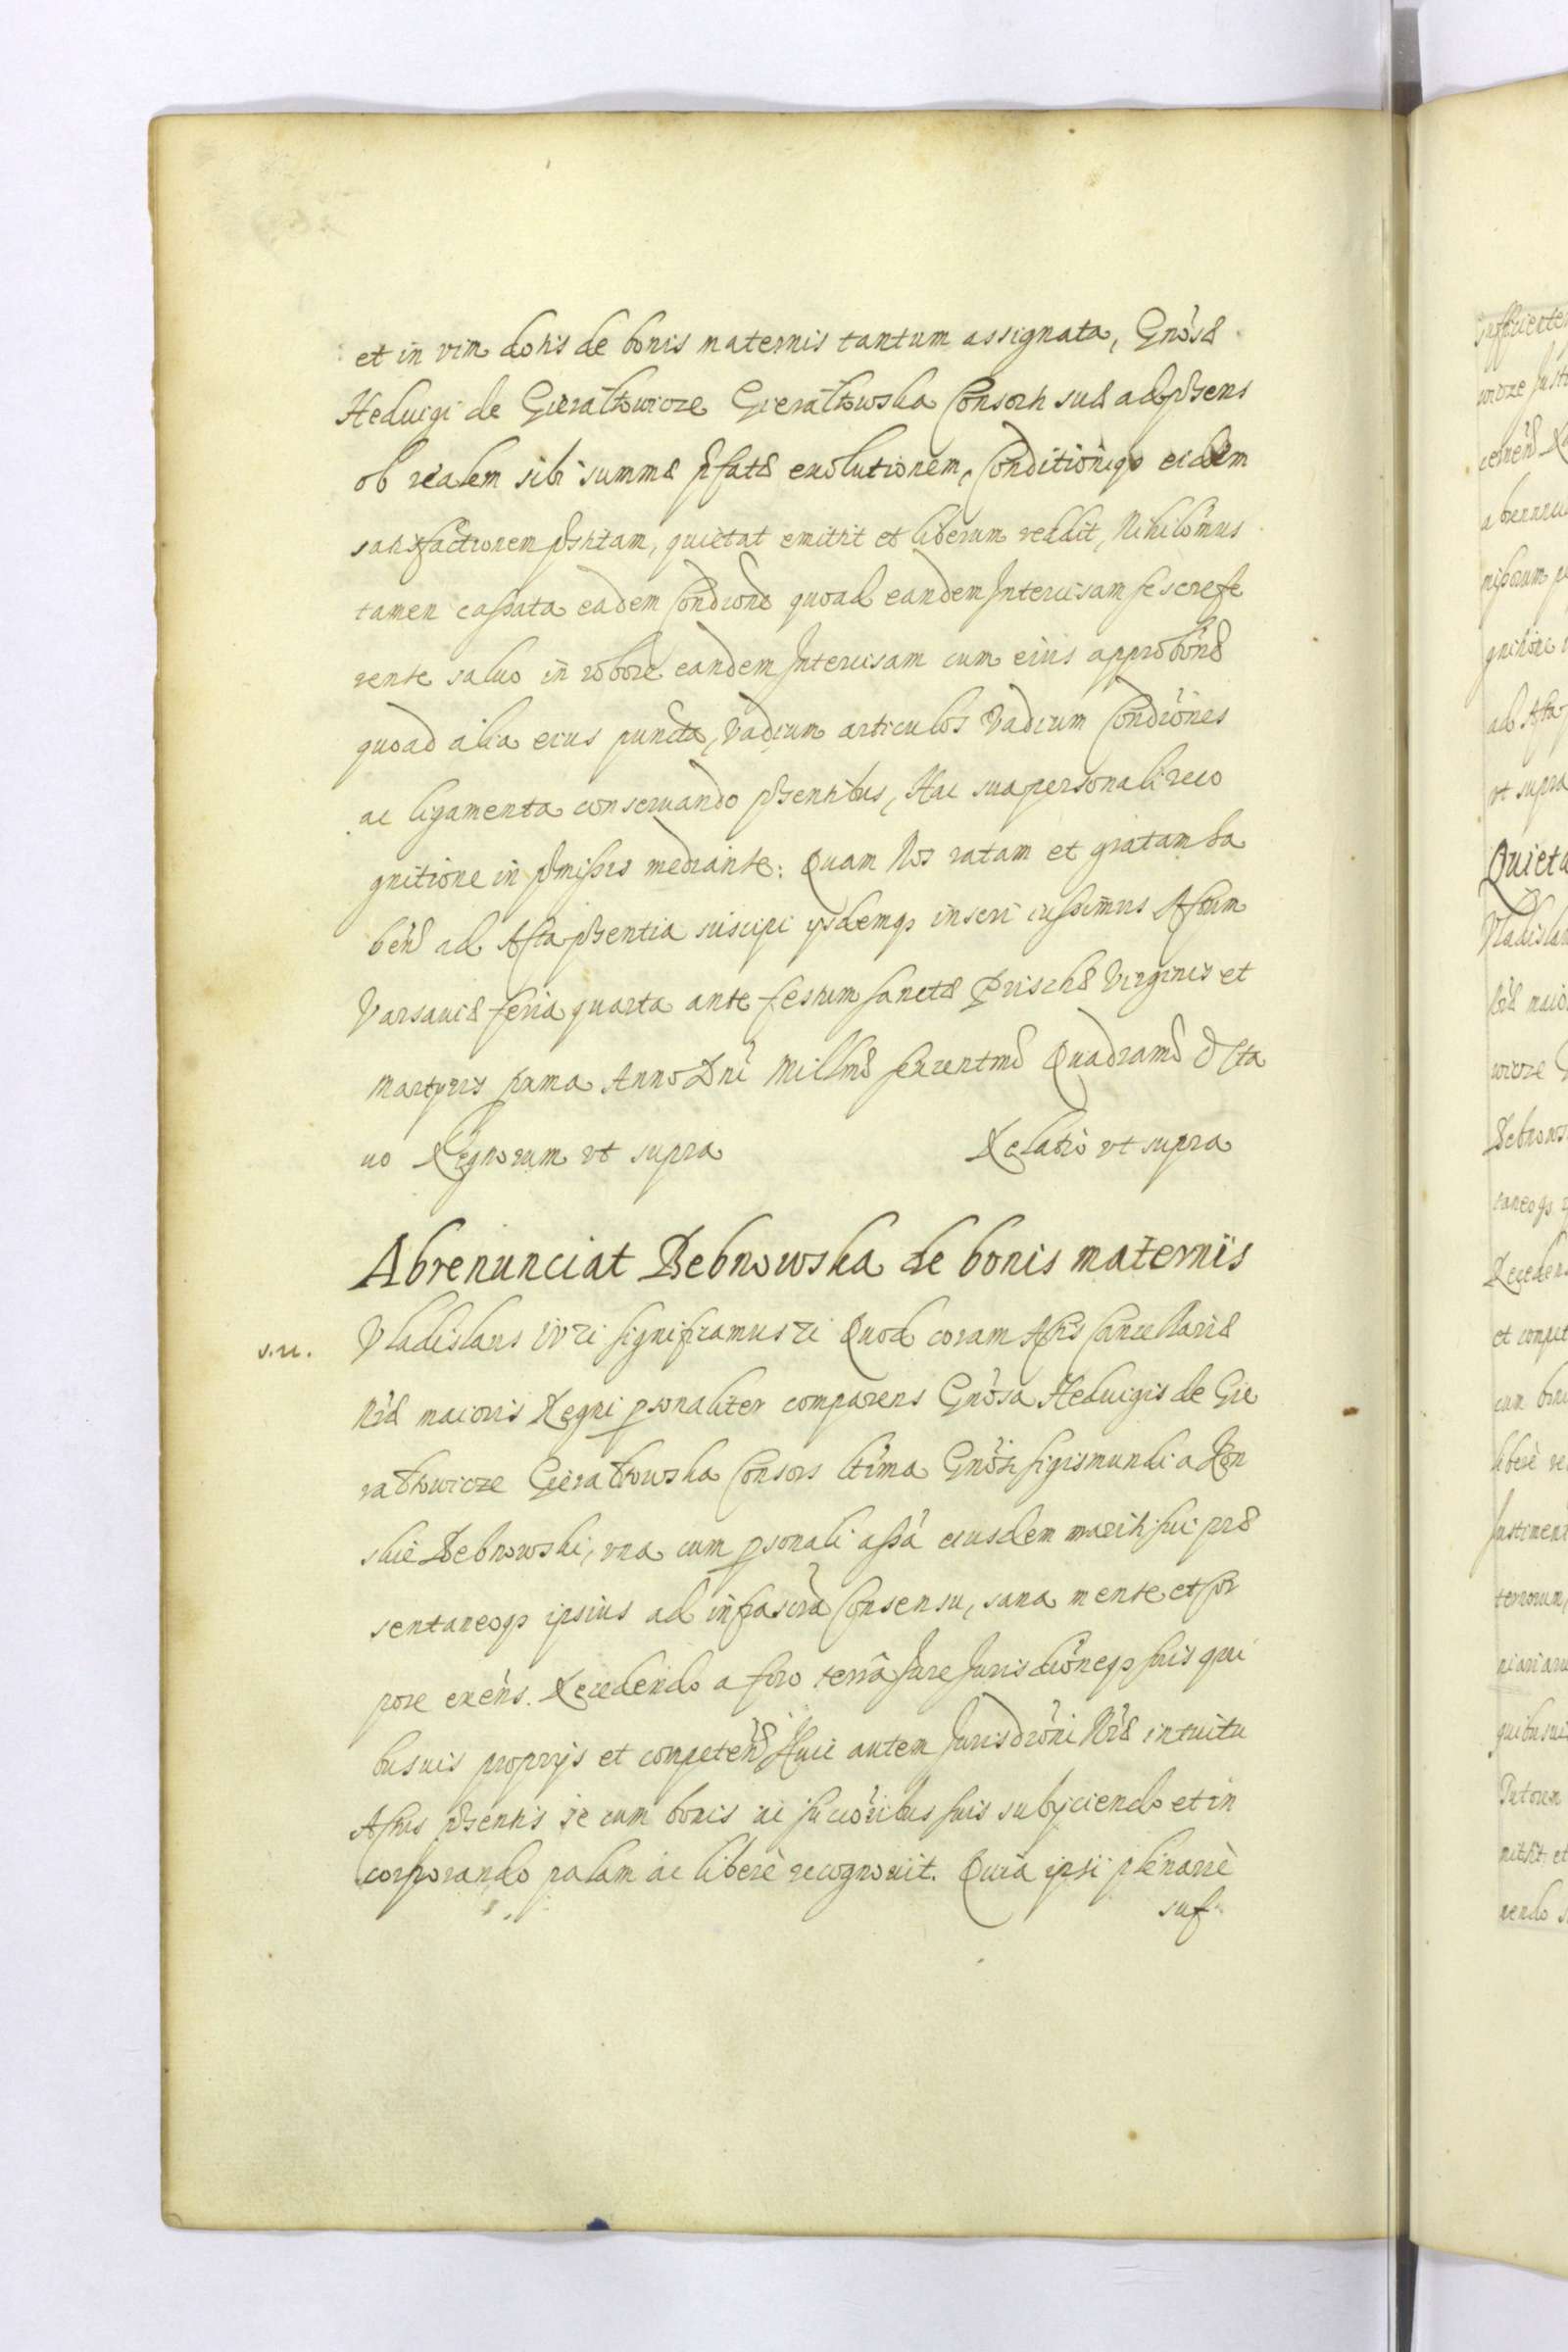 et in vim dotis de bonis maternis tantum assignata, Gnosæ
Heduigi de Gierałtowicze Gierałtowska Consorti suæ ad præsens
ob realem sibi summæ p̱fatæ euolutionem, Conditioniq; eidem
satisfactionem p̱stitam, quietat emittit et liberum reddit, Nihilominus
tamen cassata eadem Condicione quoad eandem Intercisam se se refe
rente saluo in robore eandem Intercisam cum eius approbõne
quoad alia eius puncta, vadium articulos vadium Condiõnes
ac ligamenta conseruando p̱sentibus, Hac sua personali reco
gnitione in p̱missis mediante: Quam Nos ratam et gratam ha
ben̄ ad Acta p̱sentia suscipi ysdemq; inseri iussimus Actum
Varsauiæ feria quarta ante festum Sanctæ Prischæ Virginis et
Martyris prima Anno Dni Millmõ sexcentmõ Quadramõ Octa
uo Regnorum vt supra Relatio vt supra
Abrenunciat Debnowska de bonis maternis
s.n. Vladislaus IV etc significamus etc Quod coram Actis Cancellariæ
Nræ maioris Regni p̱sonaliter comparens Gnosa Heduigis de Gie
rałtowicze Gierałtowska Consors ltima Gnosi Sigismundi a Kon
skie Debnowski, vna cum p̱sonali assã eiusdem mariti sui præ
sentaneoq; ipsius ad infrascrã Consensu, sana mente et cor
pore exēns. Recedendo a foro terrã Jure Jurisdiõneq; suis qui
busuis proprijs et competeñ Huic autem Jurisdiõni Nræ intuitu
Actus p̱sentis se cum bonis ac succõribus suis subyciendo et in
corporando palam ac liberè recognouit. Quia ipsi plenariè
suf-